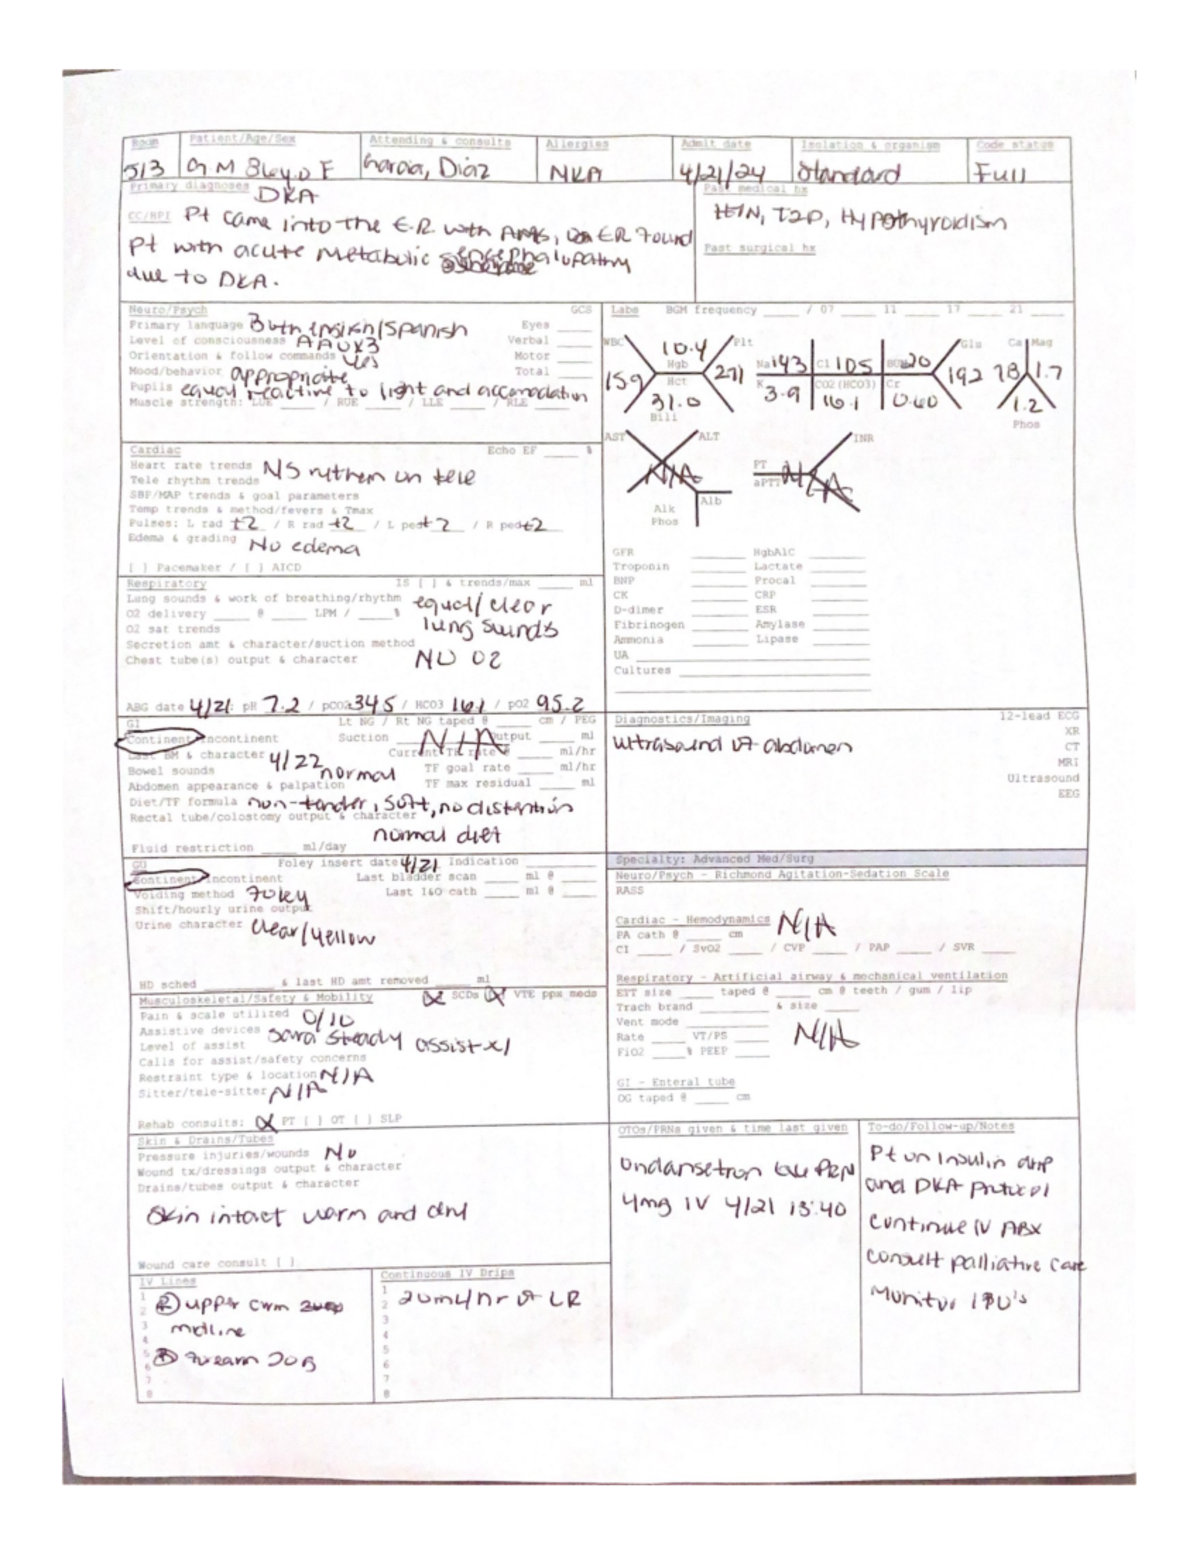 Room Patient/Age/Sex Attending & consults Allergies Admit date Isolation & organism Code status
513 G M 86y.o F Garcia, Diaz NKA 4/21/24 Standard Full
Primary diagnoses DKA
CC/HPI Pt came into the E.R with AMS, ER found
Pt with acute metabolic encephalopathy
due to DKA.
Past medical hx
HTN, T2D, Hypothyroidism
Past surgical hx
Neuro/Psych GCS
Primary language Both english/Spanish Eyes
Level of consciousness AAOX3 Verbal
Orientation & follow commands yes Motor
Mood/behavior appropriate Total
Pupils equal reactive to light and accomodation
Muscle strength: LUE / RUE / LLE / RLE
Labs BGM frequency / 07 11 17 21
WBC 10.4 Plt Na 143 Cl 105 BUN 20 Glu Ca Mag
159 Hgb 271 192 78 1.7
Hct K 3.9 CO2 (HCO3) 16.1 Cr 0.60
31.0 1.2
Bili Phos
AST ALT INR
N/A PT N/A
aPTT
Alb
Alk
Phos
Cardiac Echo EF %
Heart rate trends NS rythem on tele
Tele rhythm trends
SBP/MAP trends & goal parameters
Temp trends & method/fevers & Tmax
Pulses: L rad +2 / R rad +2 / L ped +2 / R ped +2
Edema & grading No edema
[ ] Pacemaker / [ ] AICD
GFR HgbA1C
Troponin Lactate
BNP Procal
CK CRP
D-dimer ESR
Fibrinogen Amylase
Ammonia Lipase
UA
Cultures
Respiratory IS [ ] & trends/max ml
Lung sounds & work of breathing/rhythm equal/clear
O2 delivery @ LPM / % lung sounds
O2 sat trends
Secretion amt & character/suction method
Chest tube(s) output & character NO O2
ABG date 4/21: pH 7.2 / pCO2 34.5 / HCO3 16.1 / pO2 95.2
GI Lt NG / Rt NG taped @ cm / PEG
Continent Incontinent Suction N/A Output ml
Last BM & character 4/22 Current TF rate @ ml/hr
Bowel sounds normal TF goal rate ml/hr
Abdomen appearance & palpation TF max residual ml
Diet/TF formula non-tender, soft, no distention
Rectal tube/colostomy output & character
normal diet
Fluid restriction ml/day
Diagnostics/Imaging 12-lead ECG
Ultrasound of abdomen XR
CT
MRI
Ultrasound
EEG
GU Foley insert date 4/21 Indication
Continent Incontinent Last bladder scan ml @
Voiding method foley Last I&O cath ml @
Shift/hourly urine output
Urine character clear/yellow
HD sched & last HD amt removed ml
Specialty: Advanced Med/Surg
Neuro/Psych - Richmond Agitation-Sedation Scale
RASS
Cardiac - Hemodynamics N/A
PA cath @ cm
CI / SvO2 / CVP / PAP / SVR
Respiratory - Artificial airway & mechanical ventilation
ETT size taped @ cm @ teeth / gum / lip
Trach brand & size
Vent mode N/A
Rate VT/PS
FiO2 % PEEP
GI - Enteral tube
OG taped @ cm
Musculoskeletal/Safety & Mobility [X] SCDs [X] VTE ppx meds
Pain & scale utilized 0/10
Assistive devices sara steady assist x1
Level of assist
Calls for assist/safety concerns
Restraint type & location N/A
Sitter/tele-sitter N/A
Rehab consults: [X] PT [ ] OT [ ] SLP
Skin & Drains/Tubes
Pressure injuries/wounds No
Wound tx/dressings output & character
Drains/tubes output & character
Skin intact warm and dry
Wound care consult [ ]
OTOs/PRNs given & time last given
Ondansetron PRN
4mg IV 4/21 13:40
To-do/Follow-up/Notes
Pt on Insulin drip
and DKA protocol
Continue IV ABX
Consult palliative care
Monitor I&O's
IV Lines
1
2 (R) upper arm
3 midline
4
5 forearm 20G
6
7
8
Continuous IV Drips
1
2 20ml/hr of LR
3
4
5
6
7
8